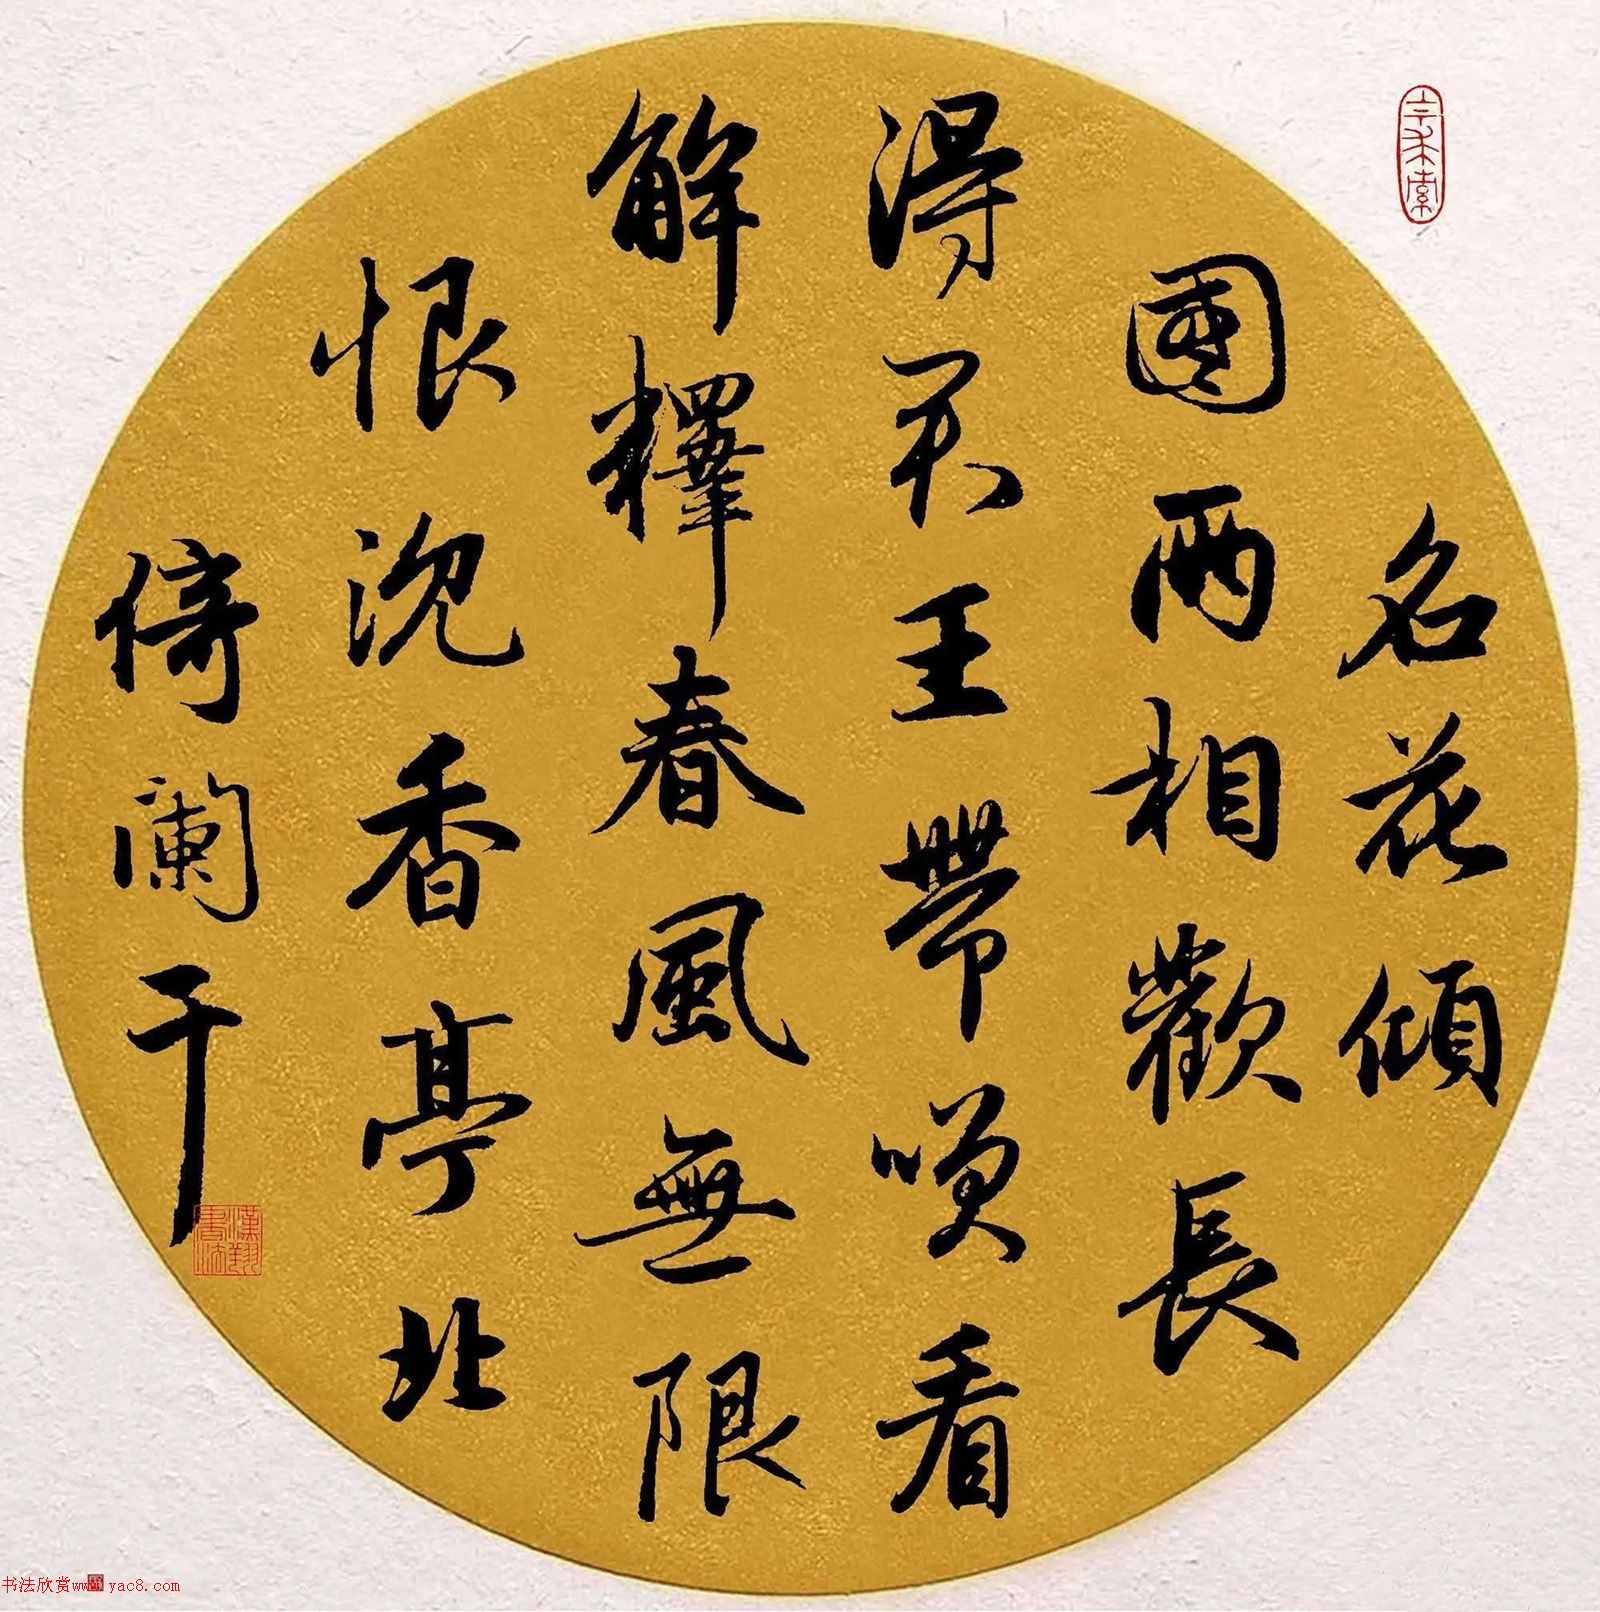 名花傾
國兩相歡長
得君王帶咲看
解釋春風無限
恨沈香亭北
倚闌干
漢翔書法
书法欣赏www.yac8.com